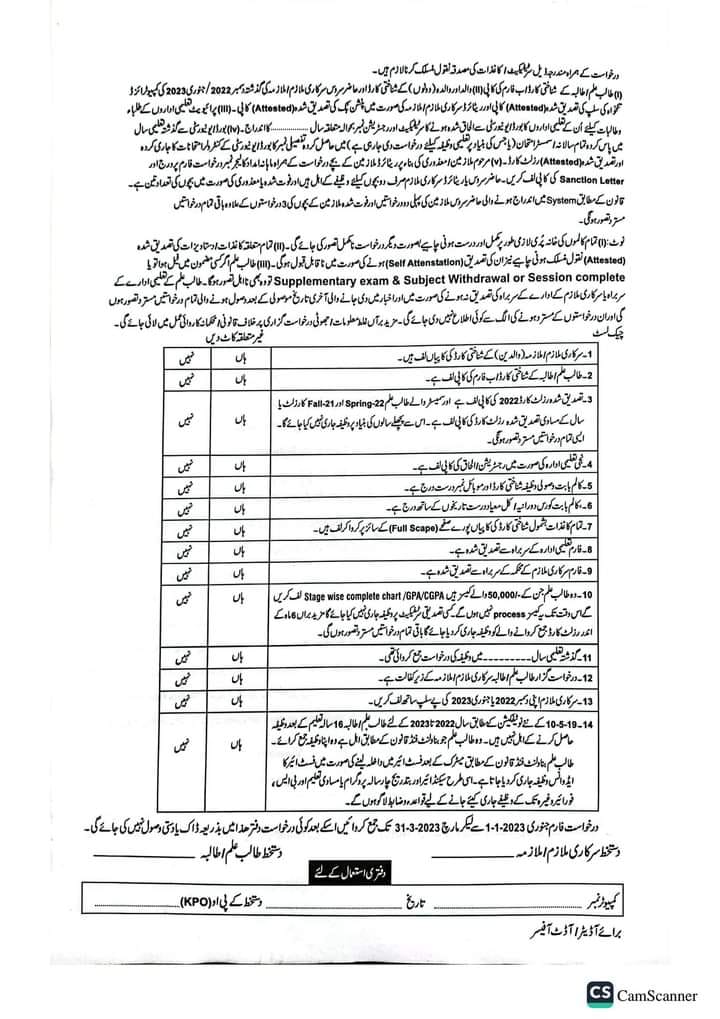 درخواست کے ہمراہ مندرجہ ذیل سرٹیفکیٹ / کاغذات کی مصدقہ نقول منسلک کرنا لازم ہیں۔
(I) طالب علم / طالبہ کے شناختی کارڈ / ب فارم کی کاپی (II) والد اور والدہ (دونوں) کے شناختی کارڈ اور حاضر سروس سرکاری ملازم / ملازمہ کی گذشتہ دسمبر 2022/جنوری 2023 کی کمپیوٹرائزڈ
تنخواہ کی سلپ کی تصدیق شدہ (Attested) کاپی اور ریٹائرڈ سرکاری ملازم / ملازمہ کی صورت میں پنشن بک کی تصدیق شدہ (Attested) کاپی۔ (III) پرائیویٹ تعلیمی اداروں کے طلباء
و طالبات کیلئے اُن کے تعلیمی اداروں کا بورڈ / یونیورسٹی سے الحاق شدہ ہونے کا سرٹیفکیٹ اور رجسٹریشن نمبر بحوالہ متعلقہ سال .................... کا اندراج۔ (iv) بورڈ / یونیورسٹی سے گذشتہ تعلیمی سال
میں پاس کردہ تمام سالانہ / سمسٹر امتحان (یا جس کی بنیاد پر تعلیمی وظیفہ کیلئے درخواست دی جا رہی ہے) میں حاصل کردہ تفصیلی نمبر کا بورڈ / یونیورسٹی کے کنٹرولر امتحانات کا جاری کردہ
اور تصدیق شدہ (Attested) رزلٹ کارڈ۔ (v) مرحوم ملازمین / معذوری کی بناء پر ریٹائرڈ ملازمین کے بچے درخواست کے ہمراہ ماہانہ امداد کا لیجر نمبر درخواست فارم پر درج اور
Sanction Letter کی کاپی لف کریں۔ حاضر سروس یا ریٹائرڈ سرکاری ملازم صرف دو بچوں کیلئے وظیفے کے اہل ہیں اور فوت شدہ یا معذوری کی صورت میں بچوں کی تعداد تین ہے۔
قانون کے مطابق System میں اندراج ہونے والی حاضر سروس ملازمین کی پہلی دو درخواستیں اور فوت شدہ ملازمین کے بچوں کی 3 درخواستوں کے علاوہ باقی تمام درخواستیں
مسترد تصور ہوگی۔
نوٹ: (I) تمام کالموں کی خانہ پُری لازمی طور پر مکمل اور درست ہونی چاہیے بصورت دیگر درخواست نامکمل تصور کی جائے گی۔ (II) تمام متعلقہ کاغذات / دستاویزات کی تصدیق شدہ
(Attested) نقول منسلک ہونی چاہیے نیز ان کی تصدیق (Self Attenstation) ہونے کی صورت میں ناقابل قبول ہوگی۔ (III) طالب علم اگر کسی مضمون میں فیل ہوا تو یا
Supplementary exam & Subject Withdrawal or Session complete تو وہ بھی نا اہل تصور ہوگا۔ طالب علم کے تعلیمی ادارے کے
سربراہ یا سرکاری ملازم کے ادارے کے سربراہ کی تصدیق نہ ہونے کی صورت میں اور اخبار میں دی جانے والی آخری تاریخ موصولی کے بعد وصول ہونے والی تمام درخواستیں مسترد تصور ہوں
گی اور ان درخواستوں کے مسترد ہونے کی الگ سے کوئی اطلاع نہیں دی جائے گی۔ مزید برآں غلط معلومات / جھوٹی درخواست گزاری پر خلاف قانونی / محکمانہ کاروائی عمل میں لائی جائے گی۔
چیک لسٹ
غیر متعلقہ کاٹ دیں
1- سرکاری ملازم / ملازمہ (والدین) کے شناختی کارڈ کی کاپیاں لف ہیں۔ ہاں نہیں
2- طالب علم / طالبہ کے شناختی کارڈ / ب فارم کی کاپی لف ہے۔ ہاں نہیں
3- تصدیق شدہ رزلٹ کارڈ 2022 کی کاپی لف ہے اور سمیسٹر والے طالب علم Spring-22 اور Fall-21 کا رزلٹ یا
سال کے مساوی تصدیق شدہ رزلٹ کارڈ کی کاپی لف ہے۔ اس سے پچھلے سالوں کی بنیاد پر وظیفہ جاری نہیں کیا جائے گا۔ ہاں نہیں
ایسی تمام درخواستیں مسترد تصور ہوگی۔
4- نجی تعلیمی ادارہ کی صورت میں رجسٹریشن / الحاق کی کاپی لف ہے۔ ہاں نہیں
5- کالم بابت وصولی وظیفہ شناختی کارڈ اور موبائل نمبر درست درج ہے۔ ہاں نہیں
6- کالم بابت کورس دورانیہ / کل معیاد درست تاریخوں کے ساتھ درج ہے۔ ہاں نہیں
7- تمام کاغذات بشمول شناختی کارڈ کی کاپیاں پورے صفحے (Full Scape) کے سائز پر کروا کر لف ہیں۔ ہاں نہیں
8- فارم تعلیمی ادارہ کے سربراہ سے تصدیق شدہ ہے۔ ہاں نہیں
9- فارم سرکاری ملازم کے محکمہ کے سربراہ سے تصدیق شدہ ہے۔ ہاں نہیں
10- وہ طالب علم جن کے -/50,000 والے کیسز ہیں Stage wise complete chart /GPA/CGPA لف کریں ہاں نہیں
گے اس وقت تک یہ کیسز process نہیں ہوں گے۔ کسی تصدیقی سرٹیفکیٹ پر وظیفہ جاری نہیں کیا جائے گا مزید براں 6 ماہ کے
اندر رزلٹ کارڈ جمع کروانے والے کو وظیفہ جاری کر دیا جائے گا باقی تمام درخواستیں مسترد تصور ہوں گی۔
11- گذشتہ تعلیمی سال ۔۔۔۔۔۔۔۔۔ میں وظیفہ کی درخواست جمع کروائی تھی۔ ہاں نہیں
12- درخواست گزار طالب علم / طالبہ سرکاری ملازم / ملازمہ کے زیر کفالت ہے۔ ہاں نہیں
13- سرکاری ملازم اپنی دسمبر 2022 یا جنوری 2023 کی پے سلپ ساتھ لف کریں۔ ہاں نہیں
14- 10-5-19 کے نئے نوٹیفکیشن کے مطابق سال 2022 تا 2023 کے لئے طالب علم / طالبہ 16 سالہ تعلیم کے بعد وظیفہ
حاصل کرنے کے اہل نہیں ہیں۔ وہ طالب علم جو بناولنٹ فنڈ قانون کے مطابق اہل ہے وہ اپنا وظیفہ جمع کرائے۔ ہاں نہیں
طالب علم بناولنٹ فنڈ قانون کے مطابق میٹرک کے بعد فسٹ ائیر میں داخلہ لینے کی صورت میں فسٹ ائیر کا
ایڈوانس وظیفہ جاری کر دیا جاتا ہے۔ اسی طرح سیکنڈ ائیر اور بتدریج چار سالہ پروگرام یا مساوی تعلیم اور بی ایس،
فور ائیر وغیرہ تک کے وظیفے جاری کیئے جانے کے لیے قواعد و ضوابط لاگو ہوں گے۔
درخواست فارم جنوری 2023-1-1 سے لیکر مارچ 2023-3-31 تک جمع کروائیں اسکے بعد کوئی درخواست دفتر ھذا میں بذریعہ ڈاک یا دستی وصول نہیں کی جائے گی۔
دستخط سرکاری ملازم / ملازمہ ____________ دستخط طالب علم / طالبہ ____________
دفتری استعمال کے لئے
کمپیوٹر نمبر .................... تاریخ .................... دستخط کے پی او (KPO) ....................
برائے آڈیٹر / آڈٹ آفیسر
CS CamScanner